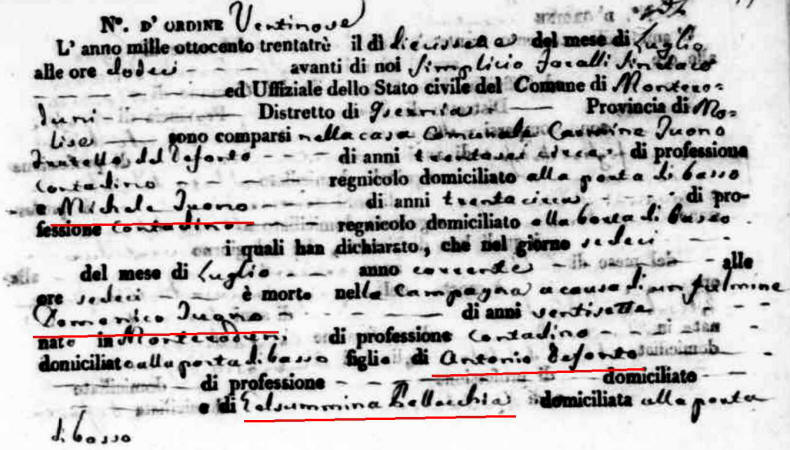 N°. D'ORDINE Ventinove
L'anno mille ottocento trentatrè il dì diecissette del mese di Luglio
alle ore dodeci avanti di noi Simplicio Jacalli Sindaco
ed Uffiziale dello Stato civile del Comune di Montero=
duni Distretto di Isernia Provincia di Mo=
lise sono comparsi nella casa Comunale Carmine Iuono
fratello del defonto di anni trentasei circa di professione
contadino regnicolo domiciliato alla porta di basso
e Michele Iuono di anni trenta circa di pro-
fessione contadino regnicolo domiciliato alla porta di basso
i quali han dichiarato, che nel giorno sedeci
del mese di Luglio anno corrente alle
ore sedeci è morto nella Campagna a causa di un fulmine
Domenico Iuono di anni ventisette
nato in Monteroduni di professione contadino
domiciliato alla porta di basso figlio di Antonio defonto
di professione domiciliato
e di domiciliata alla porta
di basso